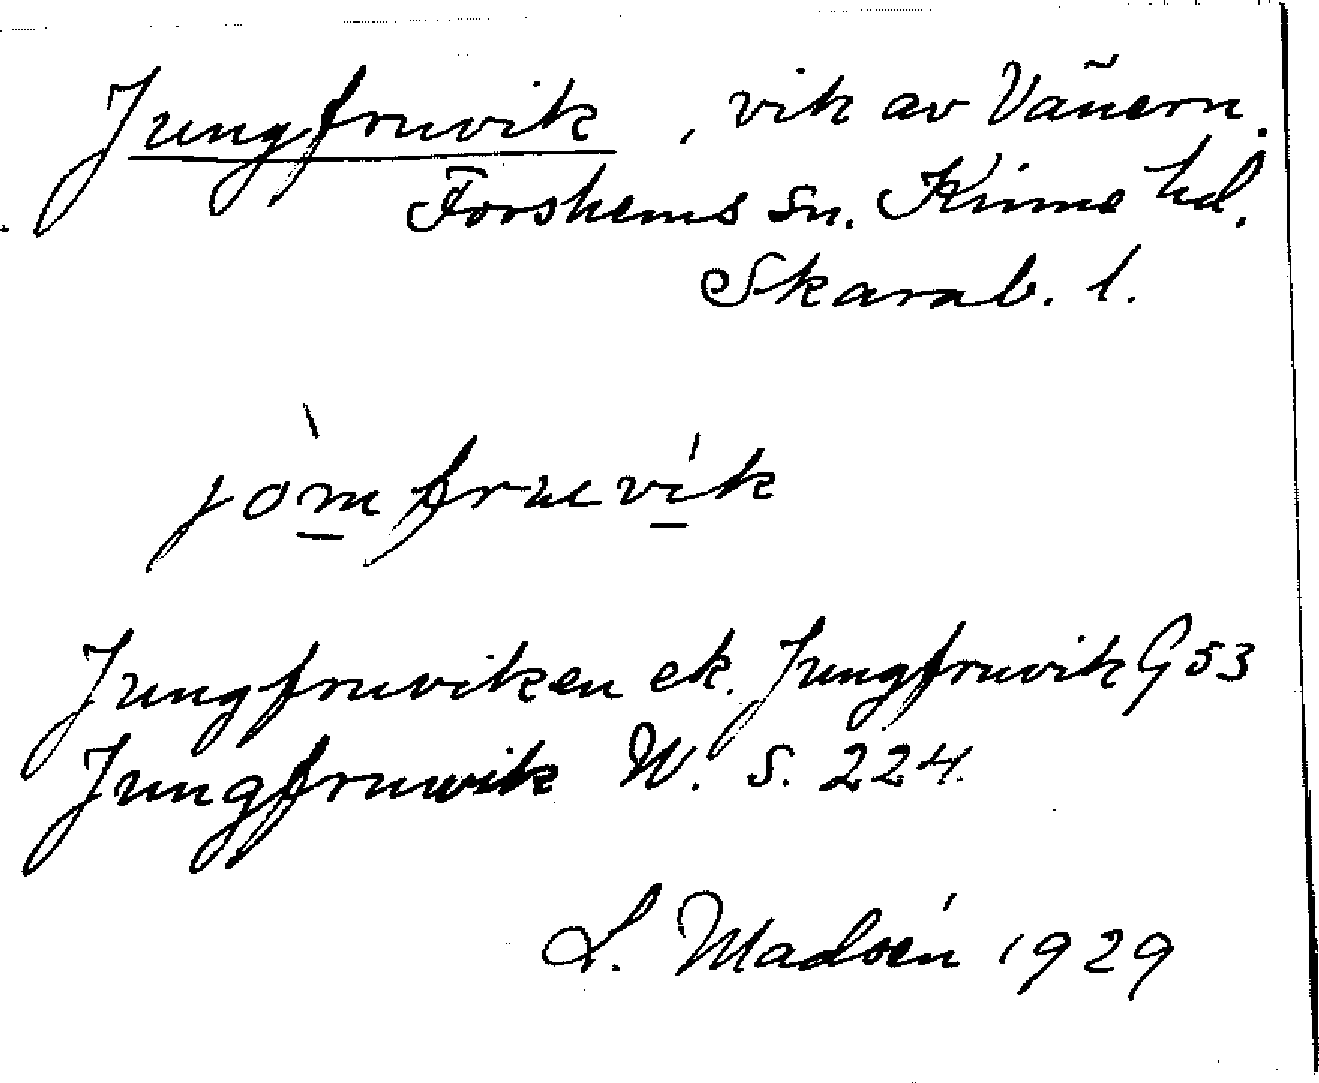 Jungfruvik, vik av Vänern.
Forshems sn. Kinne hd.
Skarab. l.
jòmfruvík
Jungfruviken ek. Jungfruvik G 53
Jungfruwik W. S. 224.
L. Madsén 1929